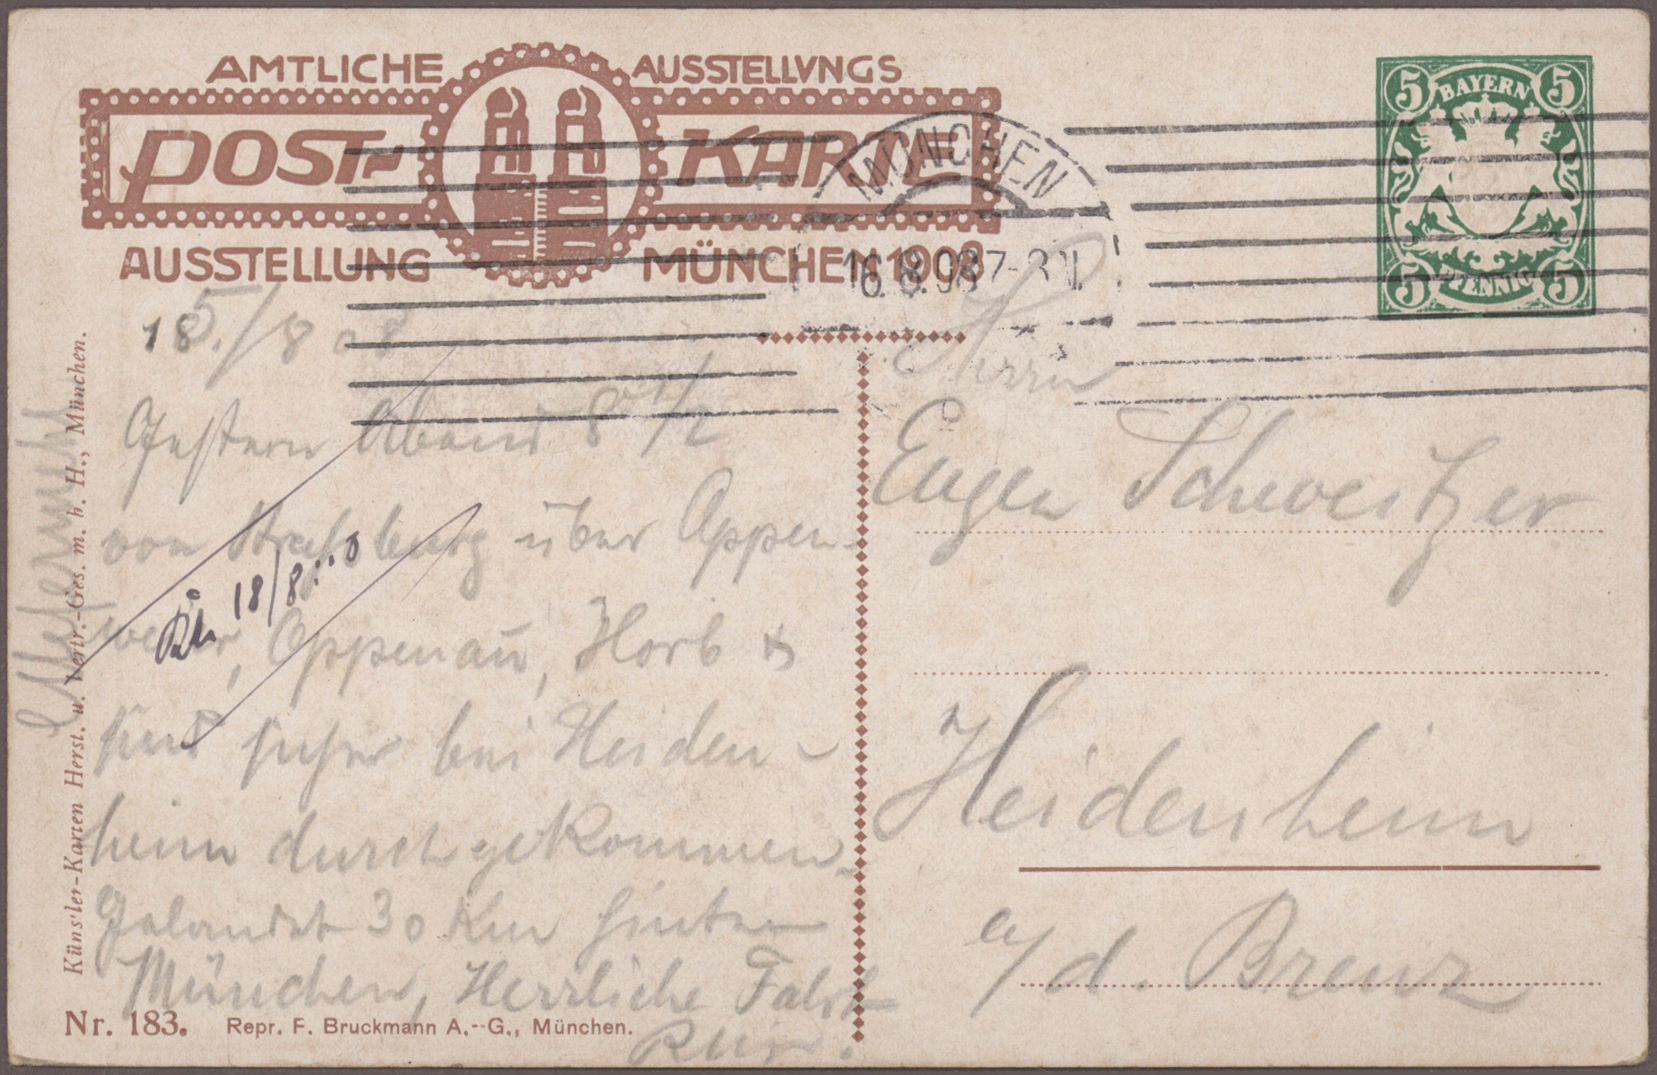 AMTLICHE AUSSTELLVNGS
POST- KARTE
AUSSTELLUNG MÜNCHEN 1908
MÜNCHEN
16.8.08 7-8
BAYERN
5 5
5 5
PFENNIG
15./8 08
Gestern Abend 8 1/2
von Straßburg über Appen-
weier, Oppenau, Horb &
sind hier bei Heiden-
heim durchgekommen.
Gelandet 30 Km hinter
München, Herrliche Fahrt
18/8
Herrn
Eugen Schweitzer
Heidenheim
a/d. Brenz
Künstler-Karten Herst. u. Vertr.-Ges. m. b. H., München.
Nr. 183. Repr. F. Bruckmann A.-G., München.